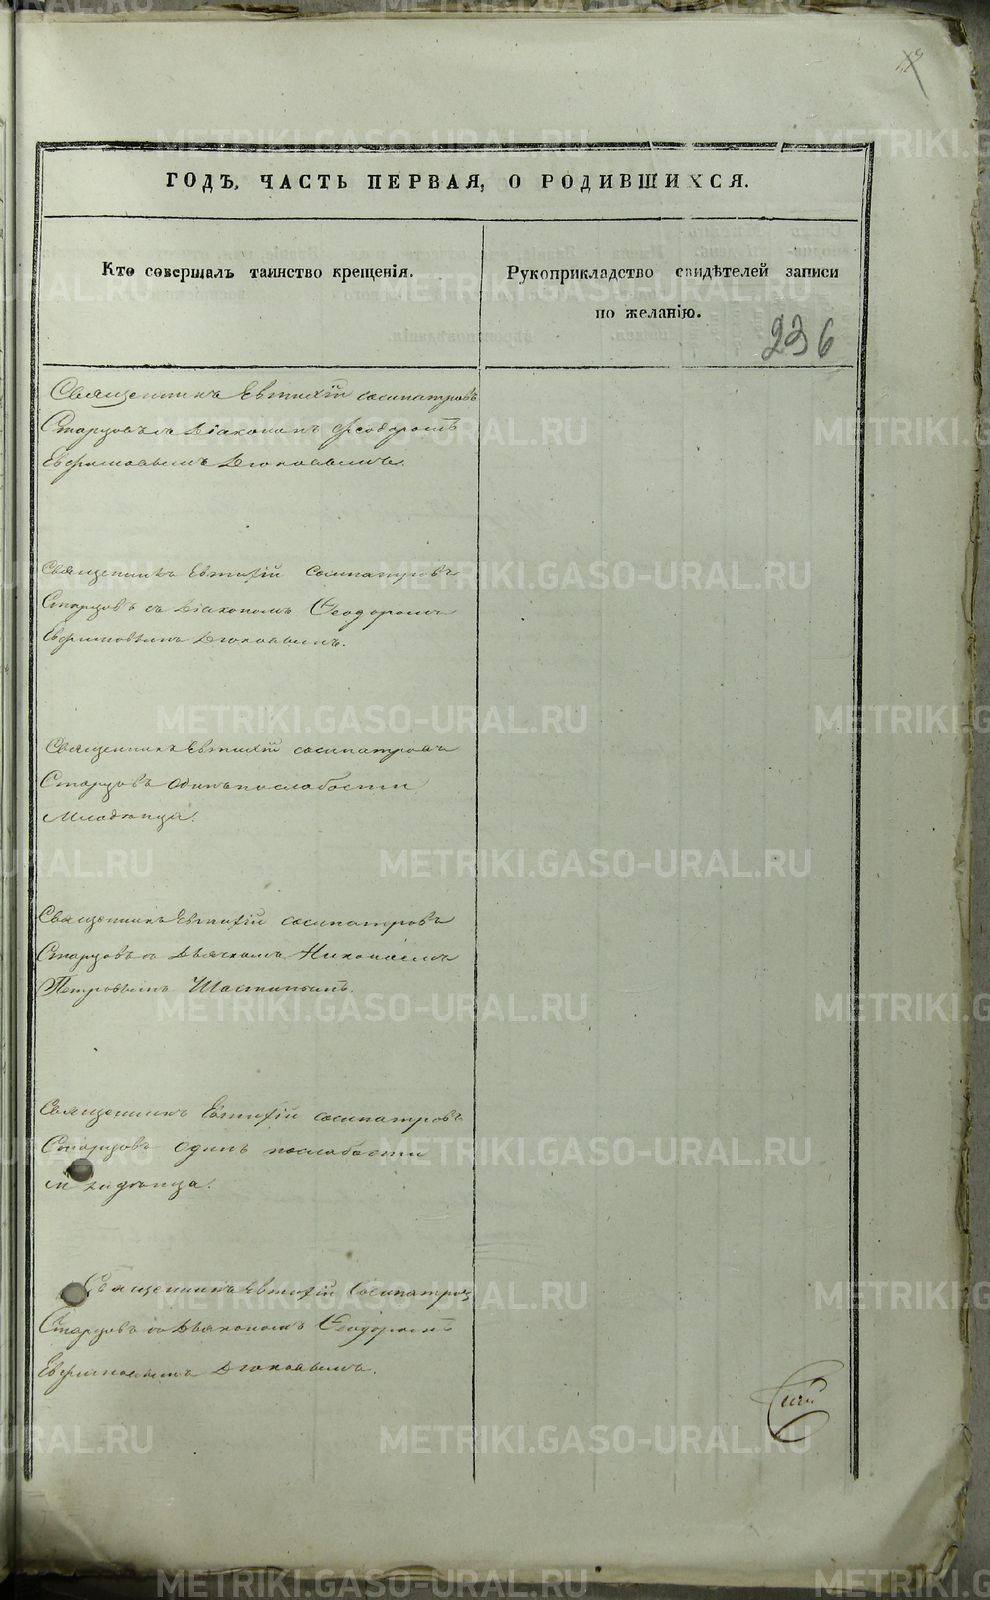 ГОДЪ, ЧАСТЬ ПЕРВАЯ, О РОДИВШИХСЯ.
Кто совершалъ таинство крещенія.
Рукоприкладство свидѣтелей записи
по желанію.
236
Священникъ Евтихій Сосипатровъ
Старцовъ съ Діакономъ Феодоромъ
Евфимовымъ
Священникъ Евтихій Сосипатровъ
Старцовъ съ Діакономъ Феодоромъ
Евфимовымъ
Священникъ Евтихій Сосипатровъ
Старцовъ одинъ по слабости
Младенца.
Священникъ Евтихій Сосипатровъ
Старцовъ съ Дьячкомъ Николаемъ
Петровымъ
Священникъ Евтихій Сосипатровъ
Старцовъ одинъ по слабости
Младенца.
Священникъ Евтихій Сосипатровъ
Старцовъ съ Діакономъ Феодоромъ
Евфимовымъ
METRIKI.GASO-URAL.RU